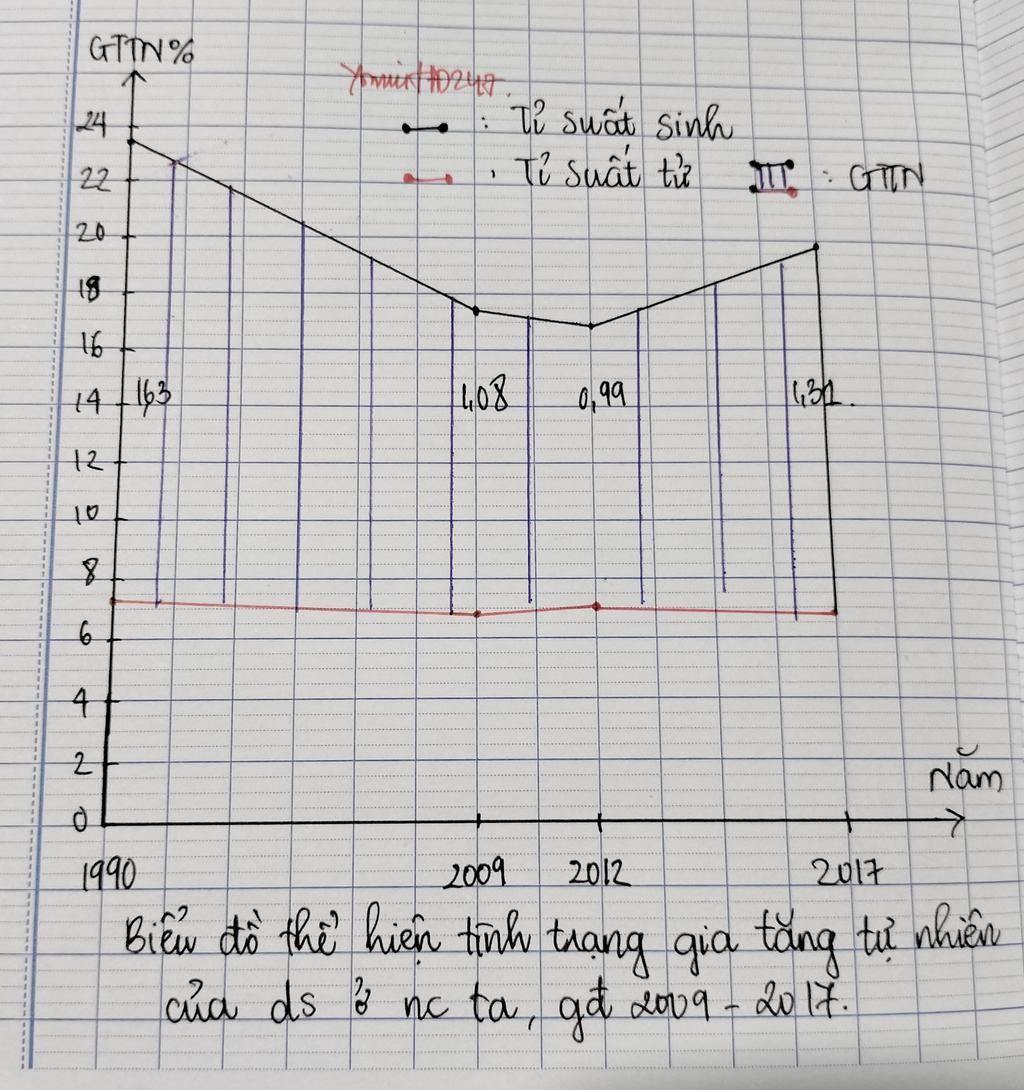 GTTN%
YominHD247.
24
: Tỉ suất sinh
22
. Tỉ suất tử
: GTTN
20
18
16
14
1,63
1,08
0,99
1,31.
12
10
8
6
4
2
0
Năm
1990
2009
2012
2017
Biểu đồ thể hiện tình trạng gia tăng tự nhiên
của ds ở nc ta, gđ 2009 - 2017.